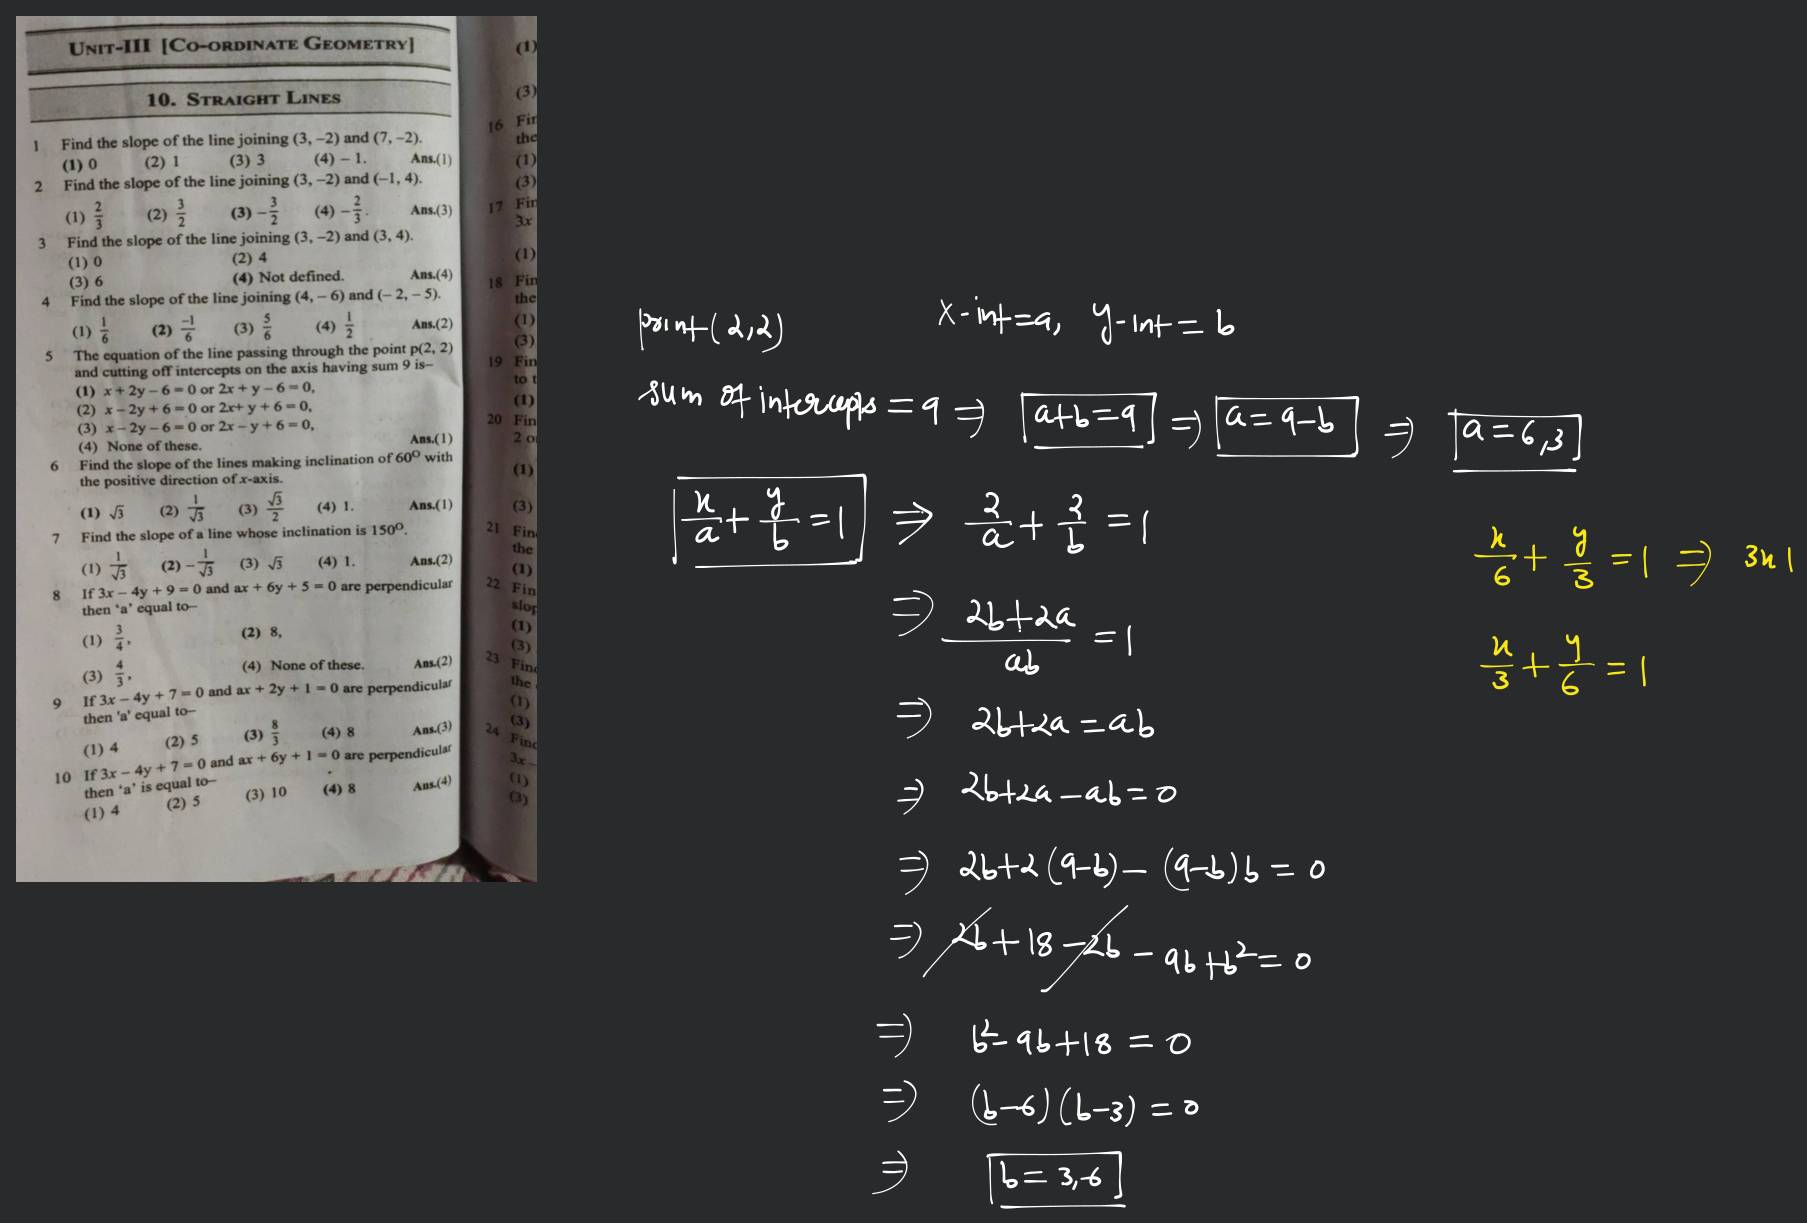 UNIT-III [CO-ORDINATE GEOMETRY]
10. STRAIGHT LINES
1 Find the slope of the line joining (3, –2) and (7, –2).
(1) 0 (2) 1 (3) 3 (4) – 1. Ans.(1)
2 Find the slope of the line joining (3, –2) and (–1, 4).
(1) 2/3 (2) 3/2 (3) –3/2 (4) –2/3. Ans.(3)
3 Find the slope of the line joining (3, –2) and (3, 4).
(1) 0 (2) 4
(3) 6 (4) Not defined. Ans.(4)
4 Find the slope of the line joining (4, – 6) and (– 2, – 5).
(1) 1/6 (2) –1/6 (3) 5/6 (4) 1/2 Ans.(2)
5 The equation of the line passing through the point p(2, 2)
and cutting off intercepts on the axis having sum 9 is–
(1) x + 2y – 6 = 0 or 2x + y – 6 = 0,
(2) x – 2y + 6 = 0 or 2x+ y + 6 = 0,
(3) x – 2y – 6 = 0 or 2x – y + 6 = 0,
(4) None of these. Ans.(1)
6 Find the slope of the lines making inclination of 60° with
the positive direction of x-axis.
(1) √3 (2) 1/√3 (3) √3/2 (4) 1. Ans.(1)
7 Find the slope of a line whose inclination is 150°.
(1) 1/√3 (2) –1/√3 (3) √3 (4) 1. Ans.(2)
8 If 3x – 4y + 9 = 0 and ax + 6y + 5 = 0 are perpendicular
then 'a' equal to–
(1) 3/4, (2) 8,
(3) 4/3, (4) None of these. Ans.(2)
9 If 3x – 4y + 7 = 0 and ax + 2y + 1 = 0 are perpendicular
then 'a' equal to–
(1) 4 (2) 5 (3) 8/3 (4) 8 Ans.(3)
10 If 3x – 4y + 7 = 0 and ax + 6y + 1 = 0 are perpendicular
then 'a' is equal to–
(1) 4 (2) 5 (3) 10 (4) 8 Ans.(4)
(1)
(3)
16
the
(1)
(3)
17
3x
(1)
18
the
(1)
(3)
19
to
(1)
20
2
(1)
(3)
21
the
(1)
22
(1)
(3)
23
the
(1)
(3)
24
3x –
(1)
(3)
point (2,2) x-int=a, y-int=b
sum of intercepts = 9 ⇒ a+b=9 ⇒ a=9-b ⇒ a=6,3
x/a + y/b = 1 ⇒ 2/a + 2/b = 1
⇒ (2b+2a)/ab = 1
⇒ 2b+2a = ab
⇒ 2b+2a-ab=0
⇒ 2b+2(9-b)-(9-b)b = 0
⇒ 2b+18-2b-9b+b²=0
⇒ b²-9b+18 = 0
⇒ (b-6)(b-3) = 0
⇒ b= 3,6
x/6 + y/3 = 1 ⇒ 3x1
x/3 + y/6 = 1